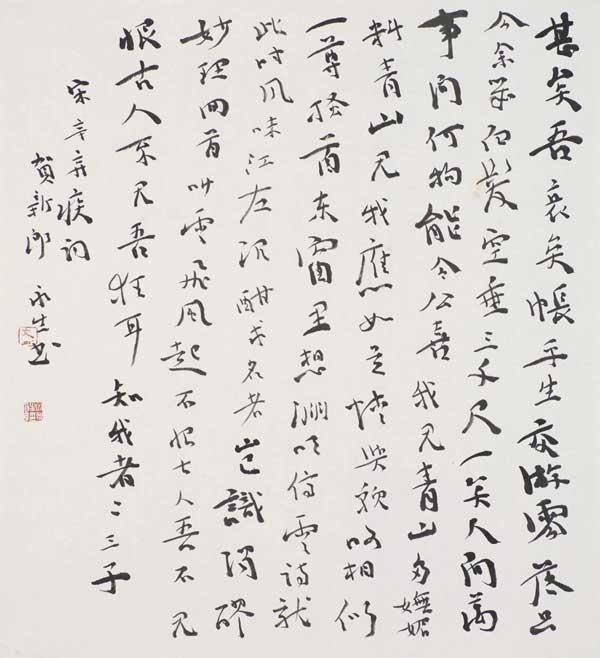 甚矣吾衰矣悵平生交游零落只
今余幾白髮空垂三千尺一笑人間萬
事問何物能令公喜我見青山多嫵媚
料青山見我應如是情與貌略相似
一尊搔首東窗里想淵明停雲詩就
此時風味江左沉酣求名者豈識濁醪
妙理回首叫雲飛風起不恨古人吾不見
恨古人不見吾狂耳知我者二三子
宋辛弃疾詞
賀新郎 永生書